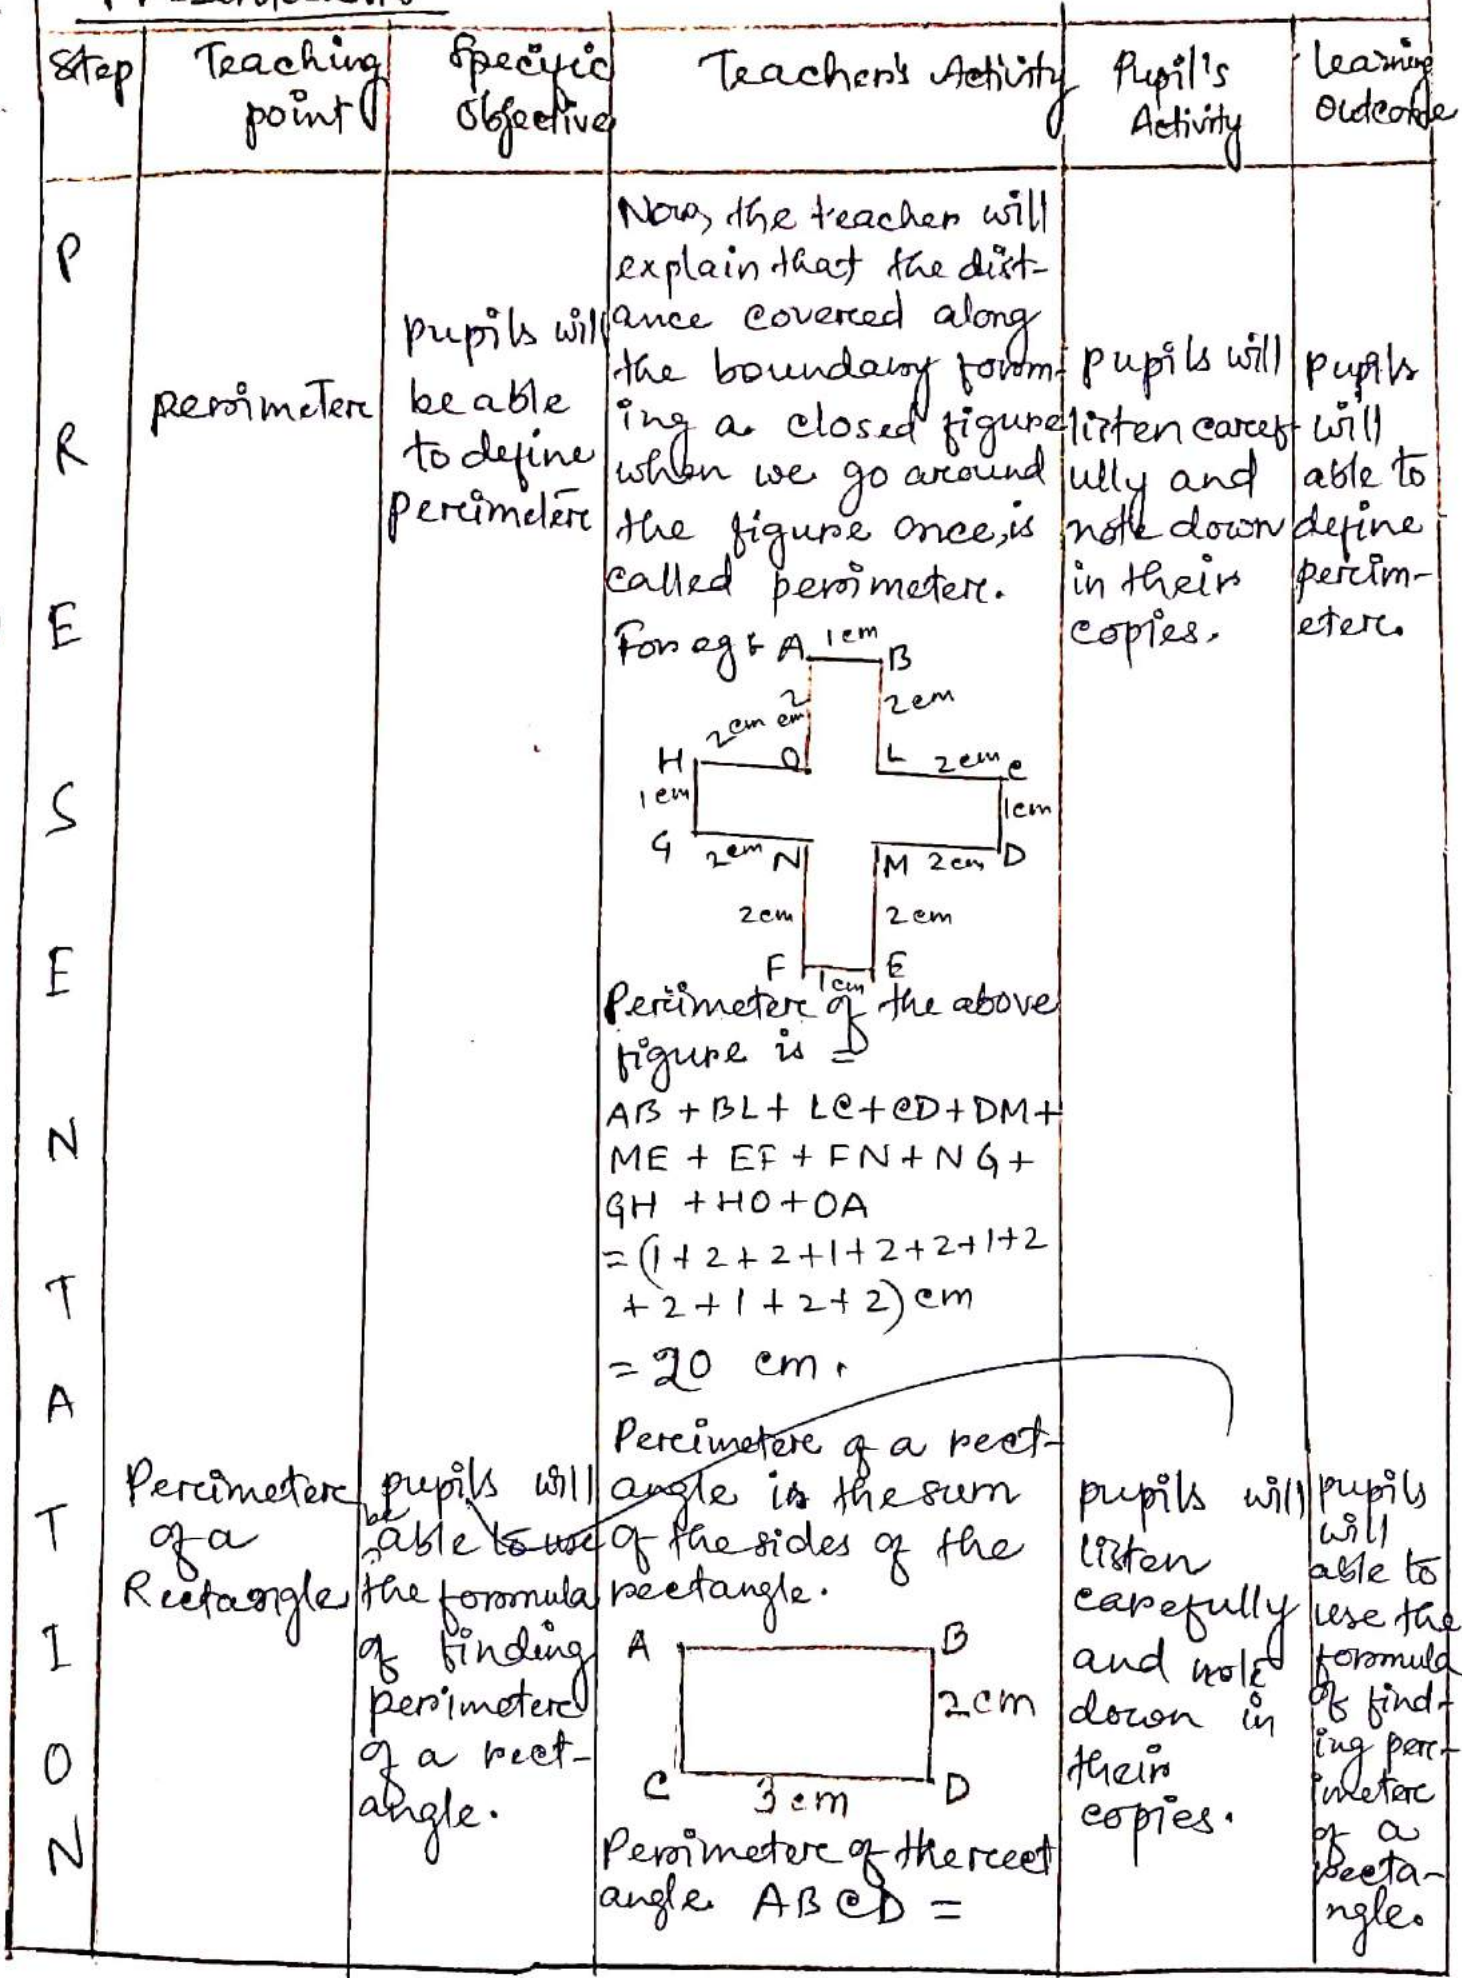 Step
Teaching
point
Specific
Objective
Teacher's Activity
Pupil's
Activity
Learning
Outcome
P
R
E
S
E
N
T
A
T
I
O
N
perimetere
pupils will
be able
to define
perimetere
Now, the teacher will
explain that the dist-
ance covered along
the boundary form-
ing a closed figure
when we go around
the figure once, is
called perimetere.
For eg:
A 1cm B
2 cm
2cm
2cm
H O L 2cm C
1cm
1cm
G 2cm N M 2cm D
2cm
2cm
F 1cm E
Perimetere of the above
figure is =
AB + BL + LC + CD + DM +
ME + EF + FN + NG +
GH + HO + OA
= (1 + 2 + 2 + 1 + 2 + 2 + 1 + 2
+ 2 + 1 + 2 + 2) cm
= 20 cm.
pupils will
listen caref
ully and
note down
in their
copies.
pupils
will
able to
define
perim-
etere.
Perimetere
of a
Rectangle
pupils will
be
able to use
the formula
of finding
perimetere
of a rect-
angle.
Perimetere of a rect-
angle is the sum
of the sides of the
rectangle.
A B
2cm
C 3cm D
Perimetere of the rect
angle ABCD =
pupils will
listen
carefully
and note
down in
their
copies.
pupils
will
able to
use the
formula
of find-
ing per-
imetere
of a
recta-
ngle.